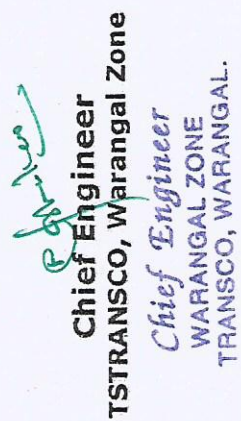 Chief Engineer
TSTRANSCO, Warangal Zone
Chief Engineer
WARANGAL ZONE
TRANSCO, WARANGAL.